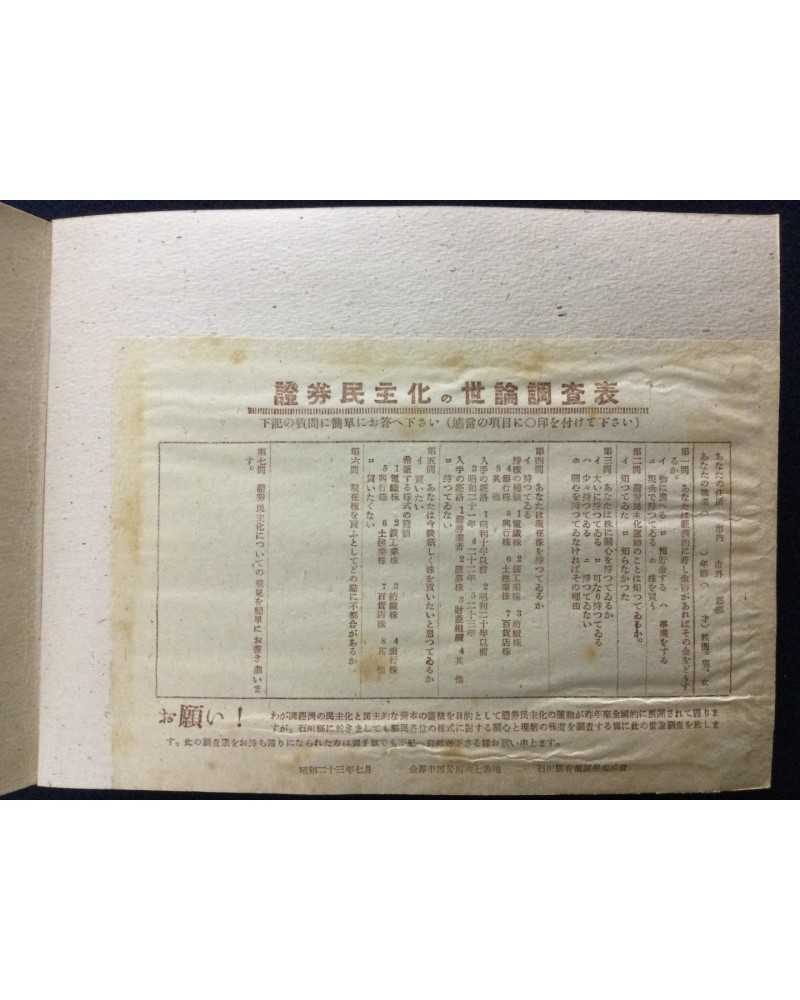 證券民主化の世論調査表
下記の質問に簡單にお答へ下さい（適當の項目に〇印を付けて下さい）
あなたの住所 市内 市外 郡部
あなたの職業（ ）年齢（ 才）性別 男、女
第一問 あなたは經濟的に若し余裕があればその金をどうす
るか。
イ 物に換へる ロ 預貯金する ハ 事業をする
ニ 現金で持つてゐる ホ 株を買う
第二問 證券民主化運動のことは知つてゐるか。
イ 知つてゐた ロ 知らなかつた
第三問 あなたは株に關心を持つてゐるか
イ 大いに持つてゐる ロ 可なり持つてゐる
ハ 少し持つてゐる ニ 持つてゐない
ホ 關心を持つてゐなければその理由
第四問 あなたは現在株を持つてゐるか
イ 持つてゐる
持株の種類 1電鐵株 2鑛工業株 3紡織株
4銀行株 5興行株 6土建業株 7百貨店株
8其他
入手の時期 1昭和十年以前 2昭和二十年以前
3昭和二十一年 4二十二年 5二十三年
入手の經路 1證券業者 2證券株 3財産相續 4其他
ロ 持つてゐない
第五問 あなたは今後新しく株を買いたいと思つてゐるか
イ 買いたい
希望する株式の種類
1電鐵株 2鑛工業株 3紡織株 4銀行株
5興行株 6土建業株 7百貨店株 8其他
ロ 買いたくない
第六問 現在株を買ふとしてどの點に不都合があるか
第七問 證券民主化についての意見を簡單にお書き願いま
す。
お願い！
わが國經濟の民主化と民主的な資本の蓄積を目的として證券民主化の運動が昨年來全國的に展開されて居りま
すが、石川縣に於きましても縣民各位の株式に對する關心と理解の程度を調査する爲に此の世論調査を致しま
す。此の調査票をお持ち歸りになられた方は御手數でも下記へ御送付下さる樣お願い申上ます。
昭和二十三年七月 金澤市